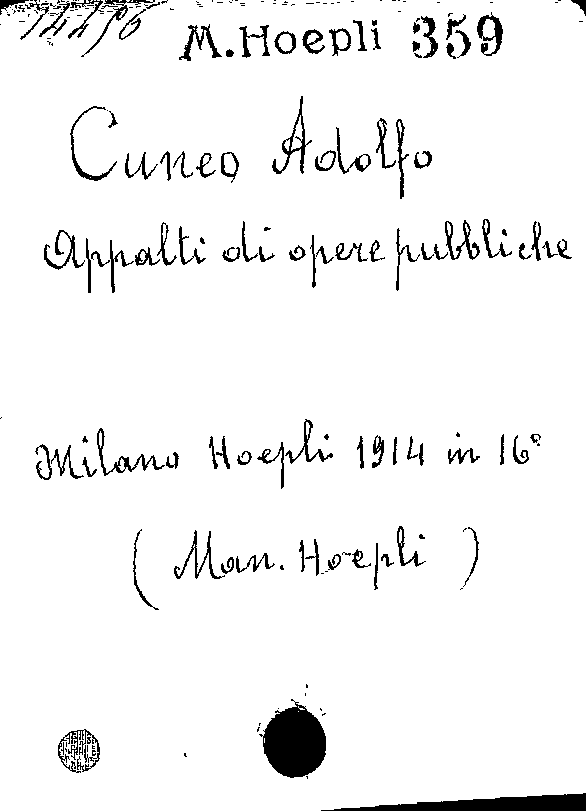 14456
M. Hoepli 359
Cuneo Adolfo
Appalti di opere pubbliche
Milano Hoepli 1914 in 16°
(Man. Hoepli)